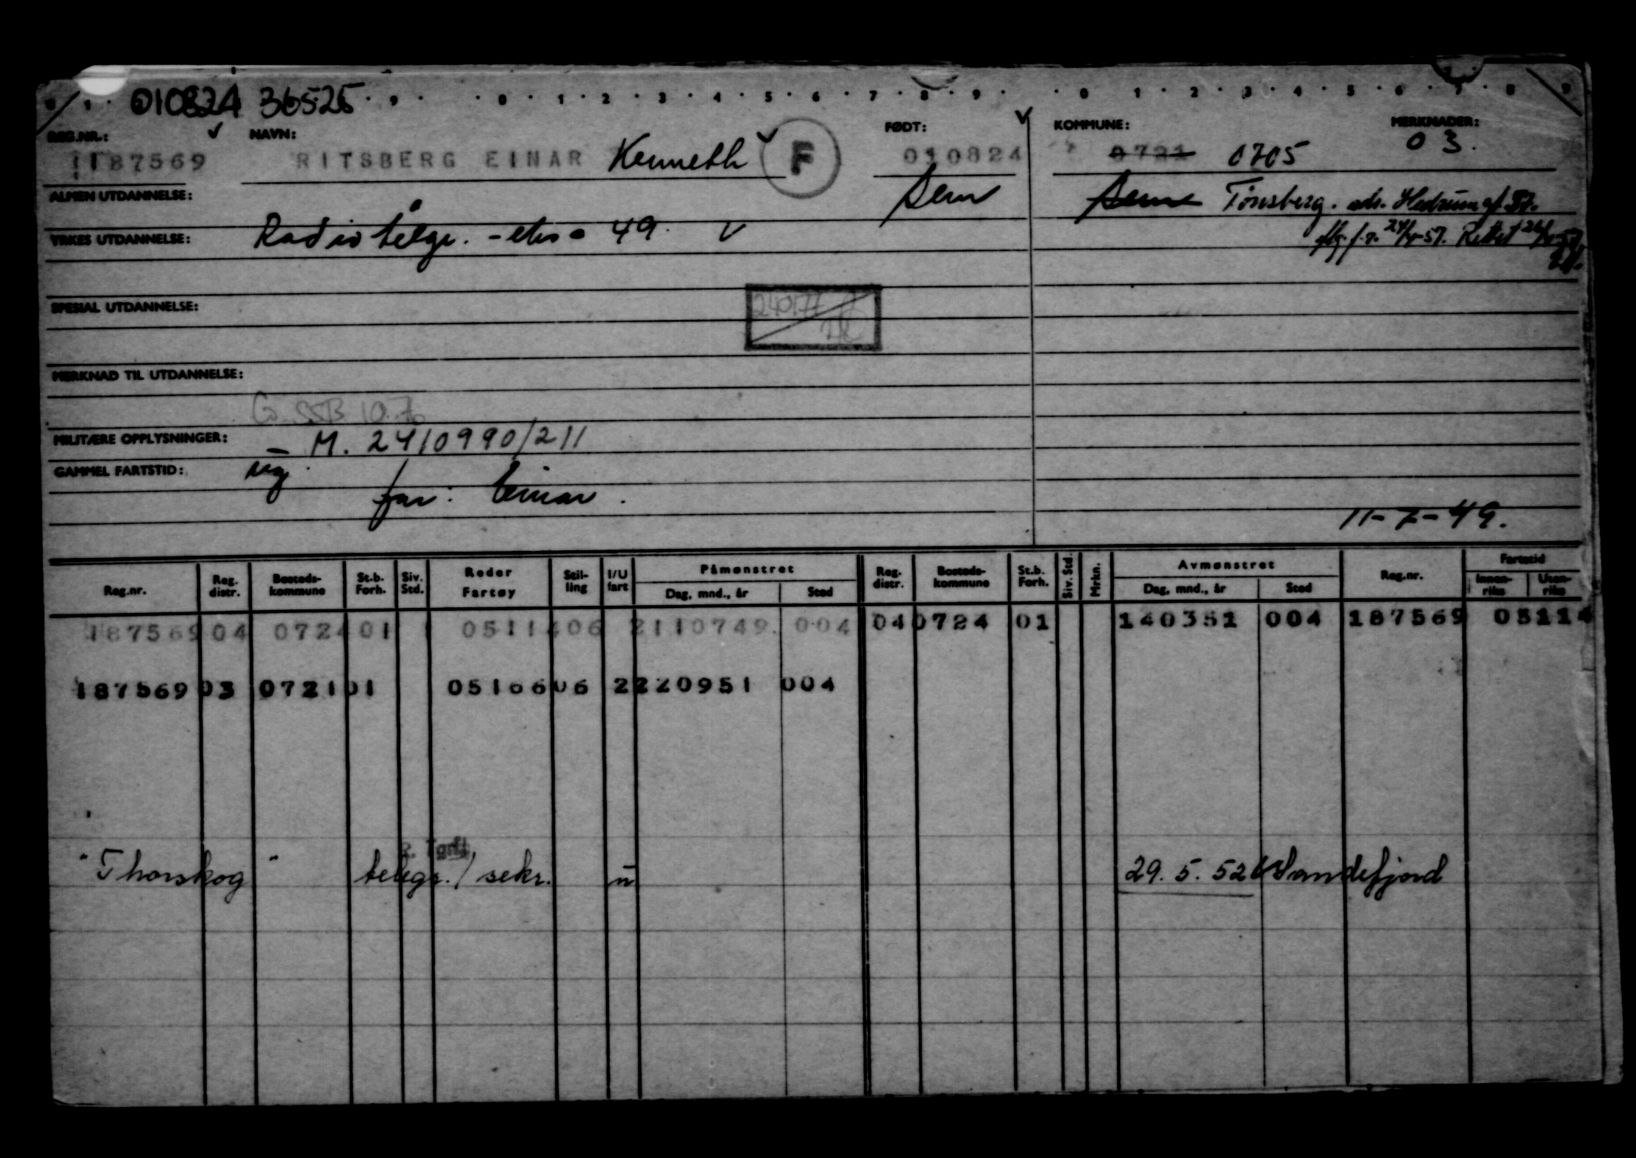 010824 36525
0 1 2 3 4 5 6 7 8 9 0 1 2 3 4 5 6 7 8 9
REG.NR.: NAVN: FØDT: KOMMUNE: MERKNADER:
187569 RITSBERG EINAR Kenneth F 010824 0721 0705 03.
ALMEN UTDANNELSE: Sem Sem Tønsberg.
YRKES UTDANNELSE: Radiotelgr. 49. V
SPESIAL UTDANNELSE:
MERKNAD TIL UTDANNELSE:
SSB 10.
MILITÆRE OPPLYSNINGER: M. 2410990/211
GAMMEL FARTSTID: ug
far: Einar.
11-7-49.
Reg.nr. Reg. distr. Bosteds-kommune St.b. Forh. Siv. Std. Reder Fartøy Stil-ling I/U fart Påmønstret Dag, mnd., år Sted Reg. distr. Bosteds-kommune St.b. Forh. Siv. Std. Mrkn. Avmønstret Dag, mnd., år Sted Reg.nr. Fartstid Innen-riks Uten-riks
187569 04 0724 01 05114 06 2 110749 004 04 0724 01 140351 004 187569 05114
187569 03 0721 01 05166 06 2 220951 004
"Thorskog" telegr./sekr. u 29.5.52 Sandefjord